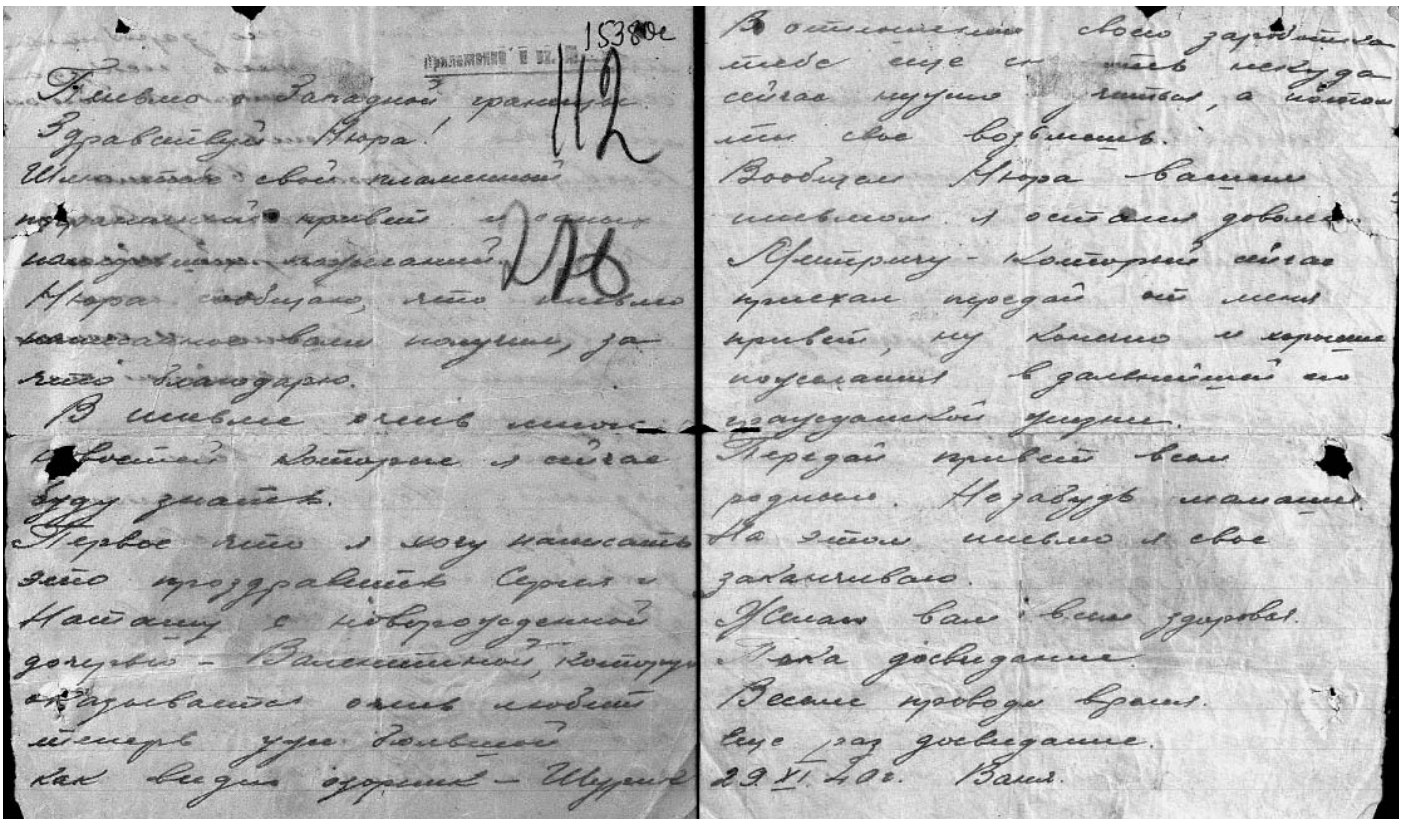 15380с
112
Письмо с Западной границы.
Здравствуй Нюра!
свой пламенный
привет и
пожеланий.
276
Нюра сообщаю, что письмо
вами получил, за
что благодарю.
В письме очень много
новостей которые я сейчас
буду знать.
Первое что я хочу написать
это проздравить Сергея и
Наташу с новорожденной
дочерью - Валентиной, которую
оказывается очень любит
теперь уже большой
как видно озорник - Шурик
В отношении своего заработка
тебе еще некуда
сейчас нужно учиться, а потом
ты свое возьмешь.
Вообщем Нюра вашим
письмом я остался доволен.
Дмитричу - который сейчас
приехал передай от меня
привет, ну конечно и хорошие
пожелания в дальнейшей его
гражданской жизни.
Передай привет всем
родным. Незабудь мамаши
На этом письмо я свое
заканчиваю.
Желаю вам всем здоровья.
Пока досвидание.
Весело проводи время.
Еще раз досвидание.
29.XI.40г. Ваня.